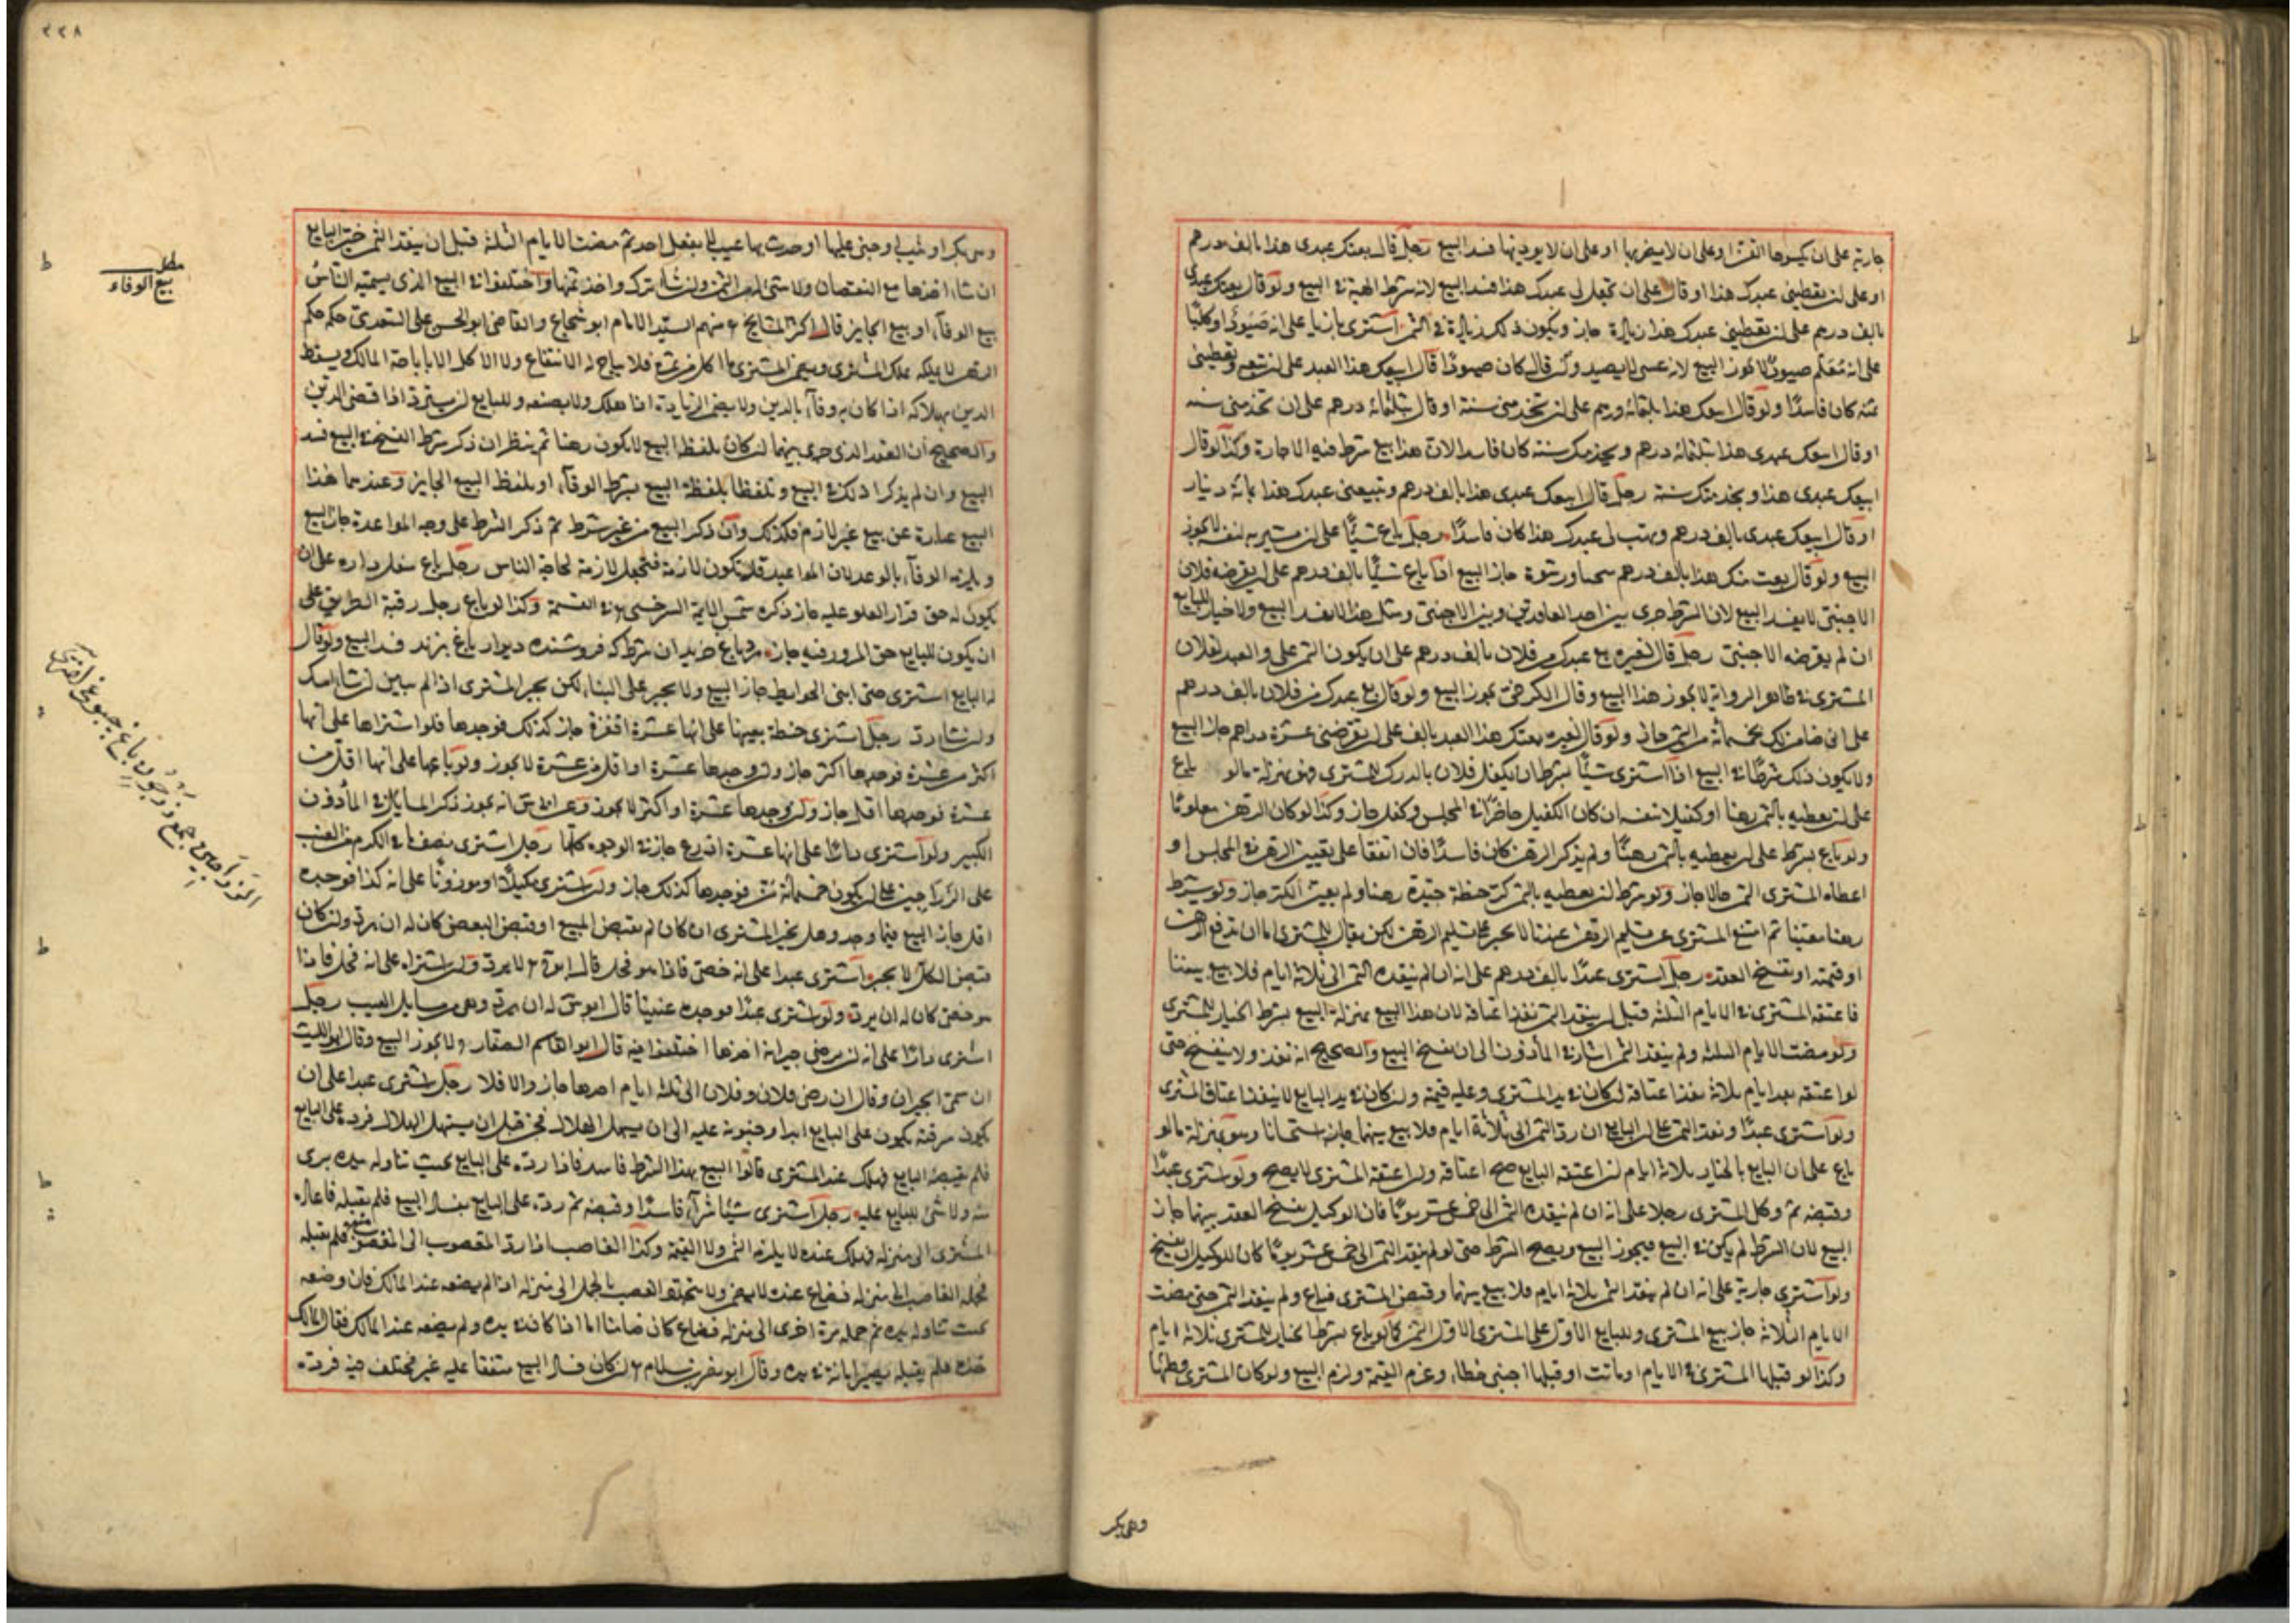 جارية على ان يكسوها القز او على ان لا يضربها او على ان لا يوذيها فسد البيع رجل قال بعتك عبدى هذا بالف درهم
او على ان يعطينى عبدك هذا او قال على ان تجعل لى عبدك هذا فسد البيع لانه شرط الهبة فى البيع ولو قال بعتك عبدى
بالف درهم على ان تعطينى عبدك هذا زيادة جاز ويكون ذلك زيادة فى الثمن اشترى بازيا على انه صيود او كلبا
على انه معلم صيود لا يجوز البيع لانه عسى لا يصيد وان قال كان صيودا قال ابيعك هذا العبد على ان تبيعه وتعطينى
ثمنه كان فاسدا ولو قال ابيعك هذا بثلثمائة درهم على ان تخدمنى سنة او قال بثلثمائة درهم على ان تخدمنى سنة
او قال ابيعك عبدى هذا بثلثمائة درهم ويخدمك سنة كان فاسدا لان هذا بيع شرط فيه الاجارة وكذا لو قال
ابيعك عبدى هذا ويخدمتك سنة رجل قال ابيعك عبدى هذا بالف درهم وتبيعنى عبدك هذا بمائة دينار
او قال ابيعك عبدى بالف درهم وتهب لى عبدك هذا كان فاسدا رجل باع شيئا على ان يشتريه لنفسه لا يجوز
البيع ولو قال بعت منك هذا بالف درهم جاز البيع اذا باع شيئا بالف درهم على ان يقرضه فلان
الاجنبى لا يفسد البيع لان الشرط جرى بين احد العاقدين وبين الاجنبى ومثل هذا لا يفسد البيع ولا خيار للبايع
ان لم يقرضه الاجنبى رجل قال لغيره بع عبدك من فلان بالف درهم على ان يكون الثمن على والعبد لفلان
المشترى فى ظاهر الرواية لا يجوز هذا البيع وقال الكرخى يجوز البيع ولو قال بع عبدك من فلان بالف درهم
على انى ضامن لك بخمسمائة من الثمن جاز ولو قال لغيره بعتك هذا العبد بالف على ان يقرضنى عشرة دراهم جاز البيع
ولا يكون ذلك شرطا فى البيع اذا اشترى شيئا بشرط ان يكفل فلان بالدرك للمشترى فهو بمنزلة ما لو باع
على ان يعطيه بالثمن رهنا او كفيلا بنفسه ان كان الكفيل حاضرا فى المجلس وكفل جاز وكذا لو كان الرهن معلوما
ولو باع بشرط على ان يعطيه بالثمن رهنا ولم يذكر الرهن كان فاسدا فان اتفقا على تعيين الرهن فى المجلس او
اعطاه المشترى الثمن حالا جاز ولو شرط ان يعطيه بالثمن كر حنطة جيدة رهنا ولم يعين الكر جاز ولو شرط
رهنا معينا ثم امتنع المشترى عن تسليم الرهن عندنا لا يجبر على تسليم الرهن لكن يقال للمشترى اما ان تدفع الرهن
او قيمته او تفسخ العقد رجل اشترى عبدا بالف درهم على انه ان لم ينقده الثمن الى ثلاثة ايام فلا بيع بيننا
فاعتقه المشترى فى الايام الثلثة قبل ان ينقد الثمن نفذ اعتاقه لان هذا البيع بمنزلة البيع بشرط الخيار للمشترى
ولو مضت الايام الثلثة ولم ينقد الثمن اشار فى المأذون الى ان يفسخ البيع والصحيح انه نفذ ولا ينفسخ حتى
لو اعتقه بعد ايام ثلاثة نفذ اعتاقه ان كان فى يد المشترى وعليه قيمته وان كان فى يد البايع لا ينفذ اعتاق المشترى
ولو اشترى عبدا ونقد الثمن على ان البايع ان رد الثمن الى ثلاثة ايام فلا بيع بينهما جاز استحسانا وهو بمنزلة ما لو
باع على ان البايع بالخيار ثلاثة ايام ان اعتقه البايع صح اعتاقه وان اعتقه المشترى لا يصح ولو اشترى عبدا
وقبضه ثم وكل المشترى رجلا على انه ان لم ينقده الثمن الى خمس عشر يوما فان الوكيل يفسخ العقد بينهما جاز
البيع لان الشرط لم يكن فى البيع فيجوز البيع ويصح الشرط حتى لو لم ينقد الثمن الى خمس عشر يوما كان للوكيل ان يفسخ
ولو اشترى جارية على انه ان لم ينقد الثمن ثلاثة ايام فلا بيع بينهما وقبض المشترى فباع ولم ينقد الثمن حتى مضت
الايام الثلاثة جاز بيع المشترى وللبايع الاول على المشترى الاول الثمن كما لو باع بشرط الخيار للمشترى ثلاثة ايام
وكذا لو قتلها المشترى فى الايام او ماتت او قتلها اجنبى خطاء وغرم القيمة ولزم البيع ولو كان المشترى وطئها
وهى بكر
٢٢٨
وهى بكر او ثيب او جنى عليها او حدث بها عيب لا بفعل احد ثم مضت الايام الثلثة قبل ان ينقد الثمن خير البايع
ان شاء اخذها مع النقصان ولا شئ له من الثمن وان شاء ترك واخذ ثمنها واختلفوا فى البيع الذى يسميه الناس
بيع الوفاء او بيع الجايز قال اكثر المشايخ منهم السيد الامام ابو شجاع والقاضى ابو الحسن على السغدى حكمه حكم
الرهن لا يملكه المشترى ويضمن المشترى ما اكل من ثمره فلا يباح له الانتفاع ولا الاكل الا باباحة المالك ويسقط
الدين بهلاكه اذا كان به وفاء بالدين ولا يضمن الزيادة اذا هلك ولا بصنعه وللبايع ان يسترد اذا قضى الدين
والصحيح ان العقد الذى جرى بينهما ان كان بلفظ البيع لا يكون رهنا ثم ينظر ان ذكر شرط الفسخ فى البيع فسد
البيع وان لم يذكرا ذلك فى البيع وتلفظا بلفظة البيع بشرط الوفاء او بلفظ البيع الجايز وعندهما هذا
البيع عبارة عن بيع غير لازم فكذلك وان ذكر البيع من غير شرط ثم ذكر الشرط على وجه المواعدة جاز البيع
ويلزمه الوفاء بالوعد لان المواعيد قد تكون لازمة فتجعل لازمة لحاجة الناس رجل باع سفل داره على ان
يكون له حق قرار العلو عليه جاز ذكره شمس الايمة السرخسى فى القسمة وكذا لو باع رجل رقبة الطريق على
ان يكون للبايع حق المرور فيه جاز مرد باغ خريد ان شرط كه فروشنده ديوار باغ بزند فسد البيع ولو قال
له البايع اشترى حتى ابنى الحوايط جاز البيع ولا يجبر على البناء لكن يخير المشترى اذا لم يبن ان شاء امسك
وان شاء رد رجل اشترى حنطة بعينها على انها عشرة اقفزة جاز كذلك فوجدها فلو اشتراها على انها
اكثر من عشرة فوجدها اكثر جاز وان وجدها عشرة او اقل من عشرة لا يجوز ولو باعها على انها اقل من
عشرة فوجدها اقل جاز وان وجدها عشرة او اكثر لا يجوز وعن انه يجوز ذكر المسايل فى المأذون
الكبير ولو اشترى دارا على انها عشرة اذرع جاز فى الوجوه كلها رجل اشترى نصف ما فى الكرم من العنب
على الزراجين على ان يكون خمسمائة من فوجدها كذلك جاز وان اشترى مكيلا او موزونا على انه كذا فوجده
اقل جاز البيع فيما وجد وهل يخير المشترى ان كان لم يقبض المبيع او قبض البعض كان له ان يرد وان كان
قبض الكل لا يجبر اشترى عبدا على انه خصى فاذا هو فحل قال لا يرد وان اشتراه على انه فحل فاذا
هو خصى كان له ان يرد ولو اشترى عبدا فوجده عنينا قال له ان يرد وهى من مسايل العيب رجل
اشترى دارا على انه ان رضى جيرانه اخذها اختلفوا فيه قال ابو القاسم الصفار ولا يجوز البيع وقال ابو الليث
ان سمى الجيران وقال ان رضى فلان وفلان الى ثلثة ايام اخذها جاز والا فلا رجل اشترى عبدا على ان
يكون سرقته يكون على البايع ابدا وجنونه عليه الى ان يستهل الهلال فجن قبل ان يستهل الهلال فرده على البايع
فلم يقبضه البايع فهلك عند المشترى قالوا البيع بهذا الشرط فاسد فاذا رده على البايع بحيث تناوله يده برى
منه ولا شئ للبايع عليه رجل اشترى شيئا شراء فاسدا وقبضه ثم رده على البايع بفساد البيع فلم يقبله فاعاده
المشترى الى منزله فهلك عنده لا يلزمه الثمن ولا القيمة وكذا الغاصب اذا رد المغصوب الى المغصوب منه فلم يقبله
فحمله الغاصب الى منزله فضاع عنده لا يضمن ولا يتجدد الغصب بالحمل الى منزله اذا لم يضعه عند المالك فان وضعه
بحيث تناوله يده ثم حمله مرة اخرى الى منزله فضاع كان ضامنا اما اذا كان فى يده ولم يضعه عند المالك فقال للمالك
خذه فلم يقبله يصير امانة فى يده وقال ابو نصر بن سلام ان كان فساد البيع متفقا عليه غير مختلف فيه فرده
مطلب
بيع الوفاء